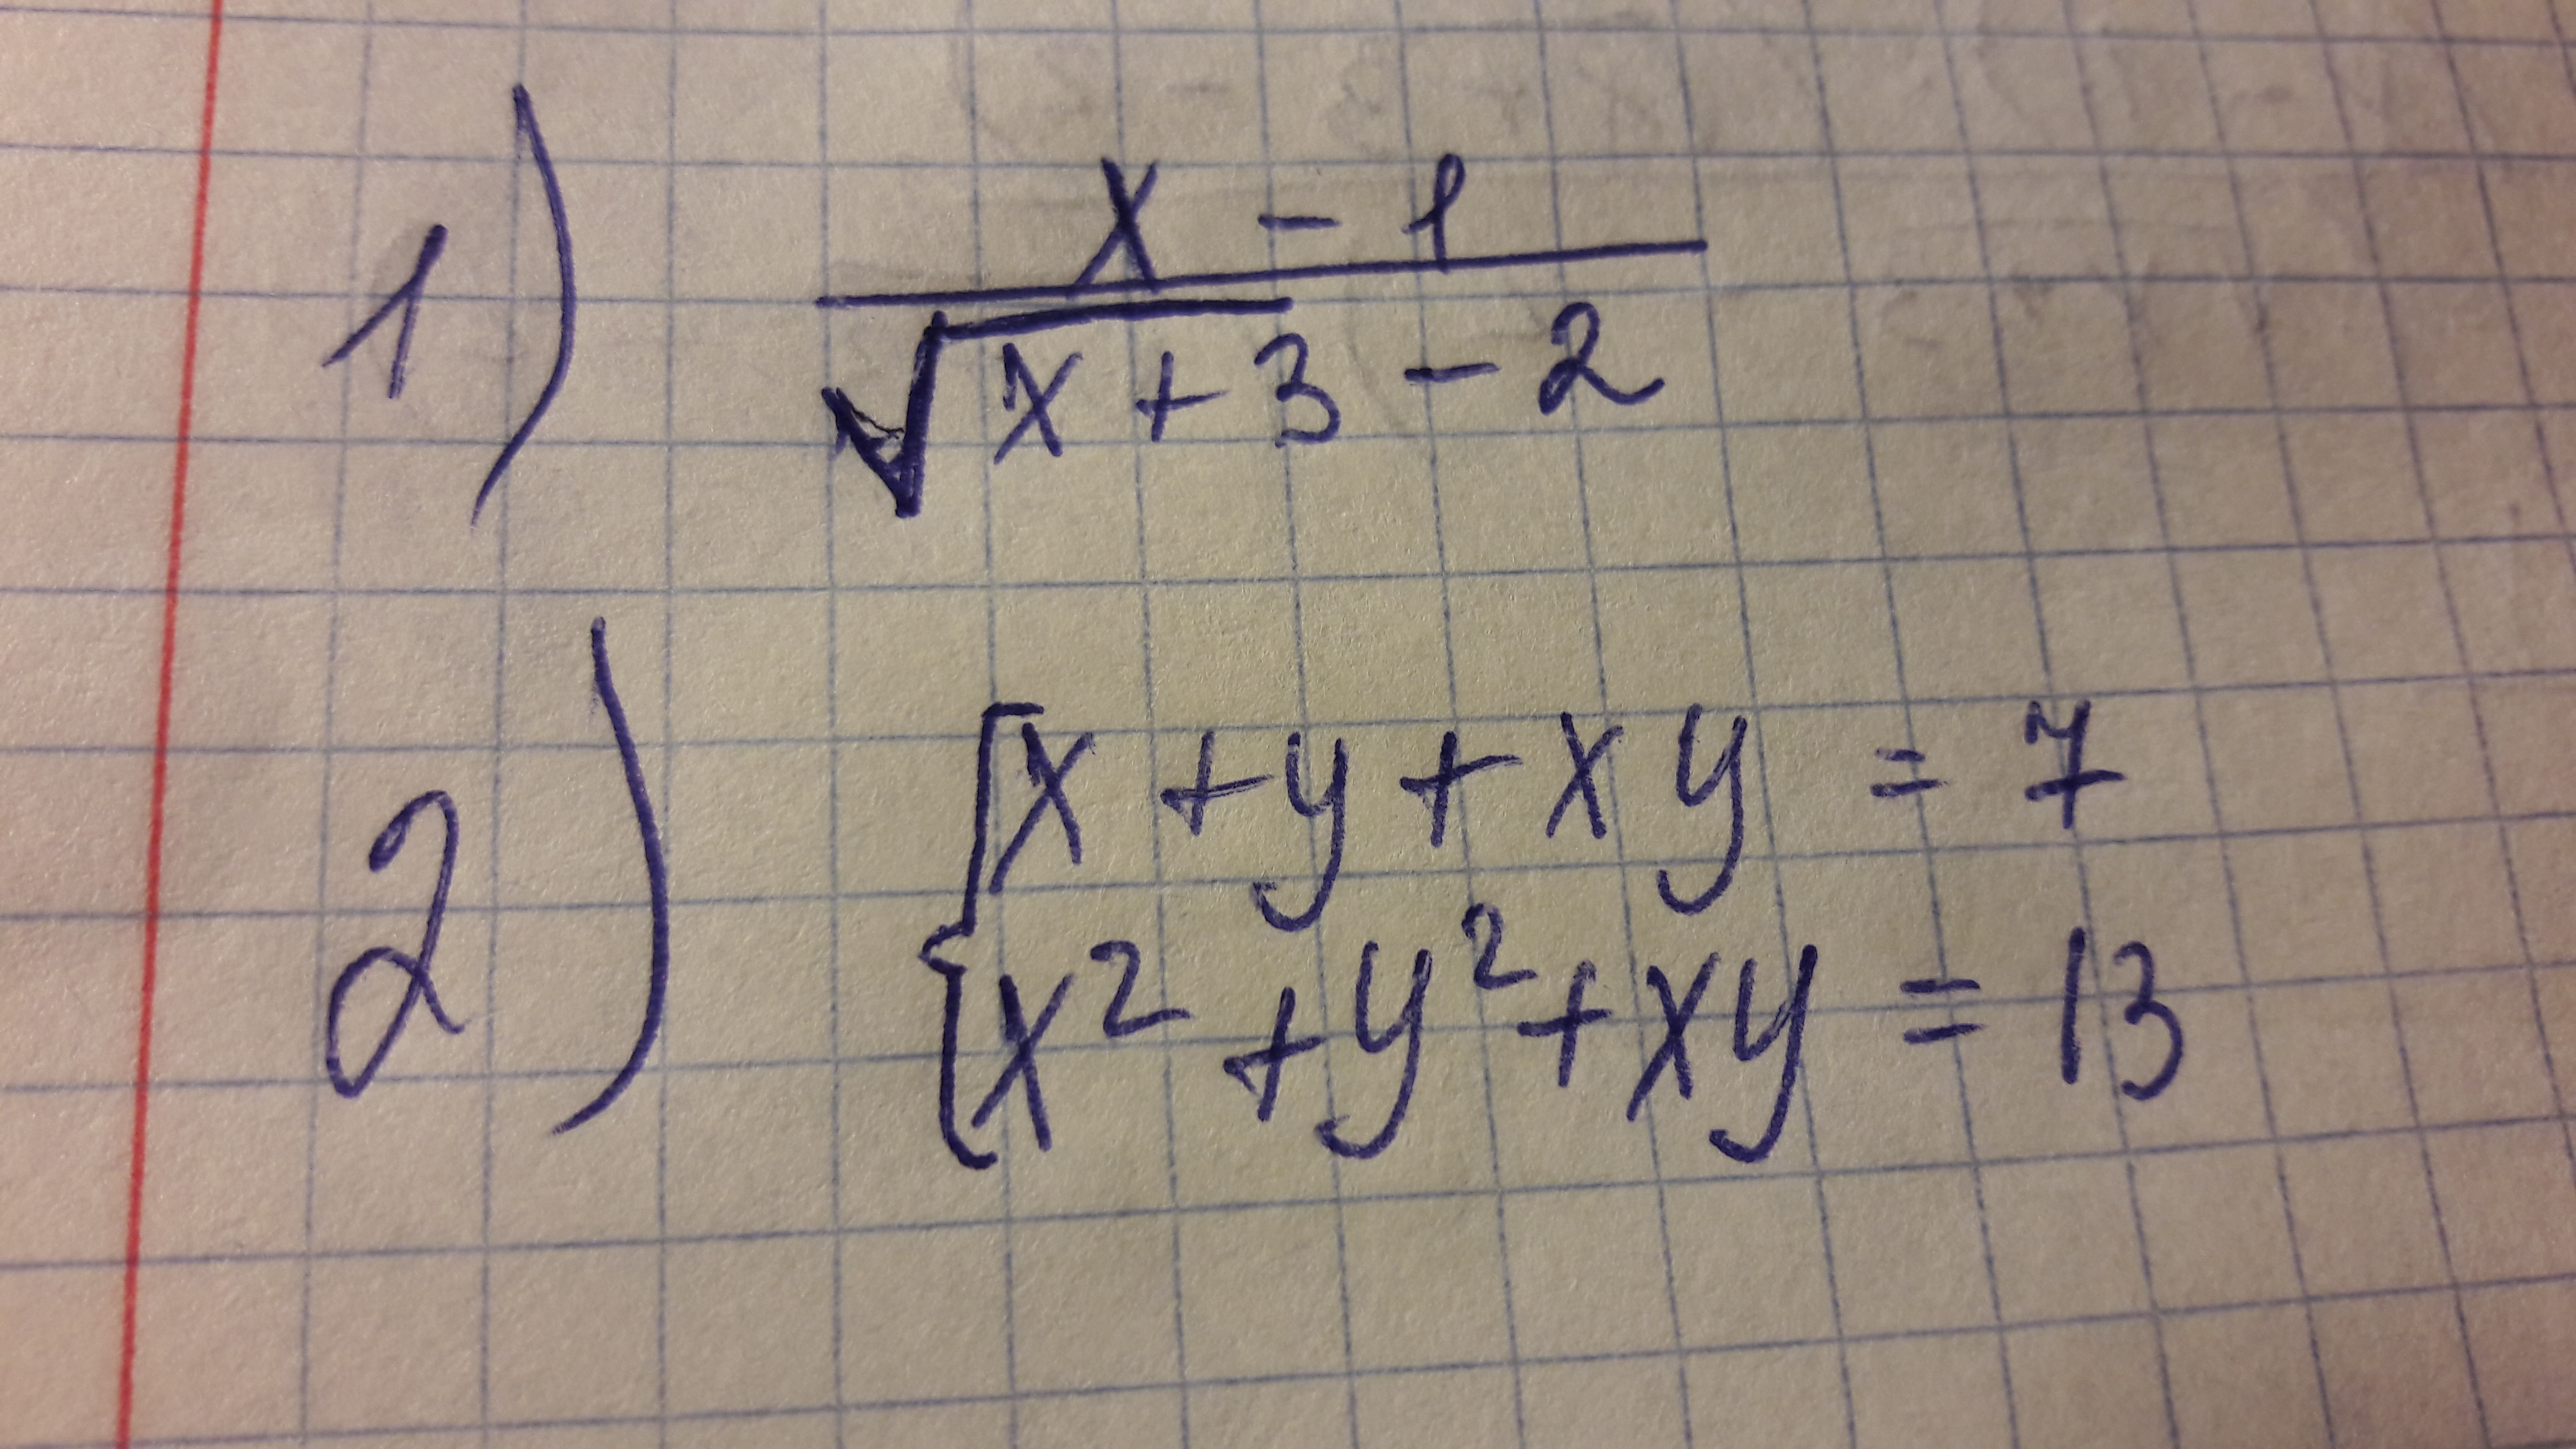 1) (x - 1) / (√(x + 3) - 2)
2) { x + y + xy = 7
x² + y² + xy = 13